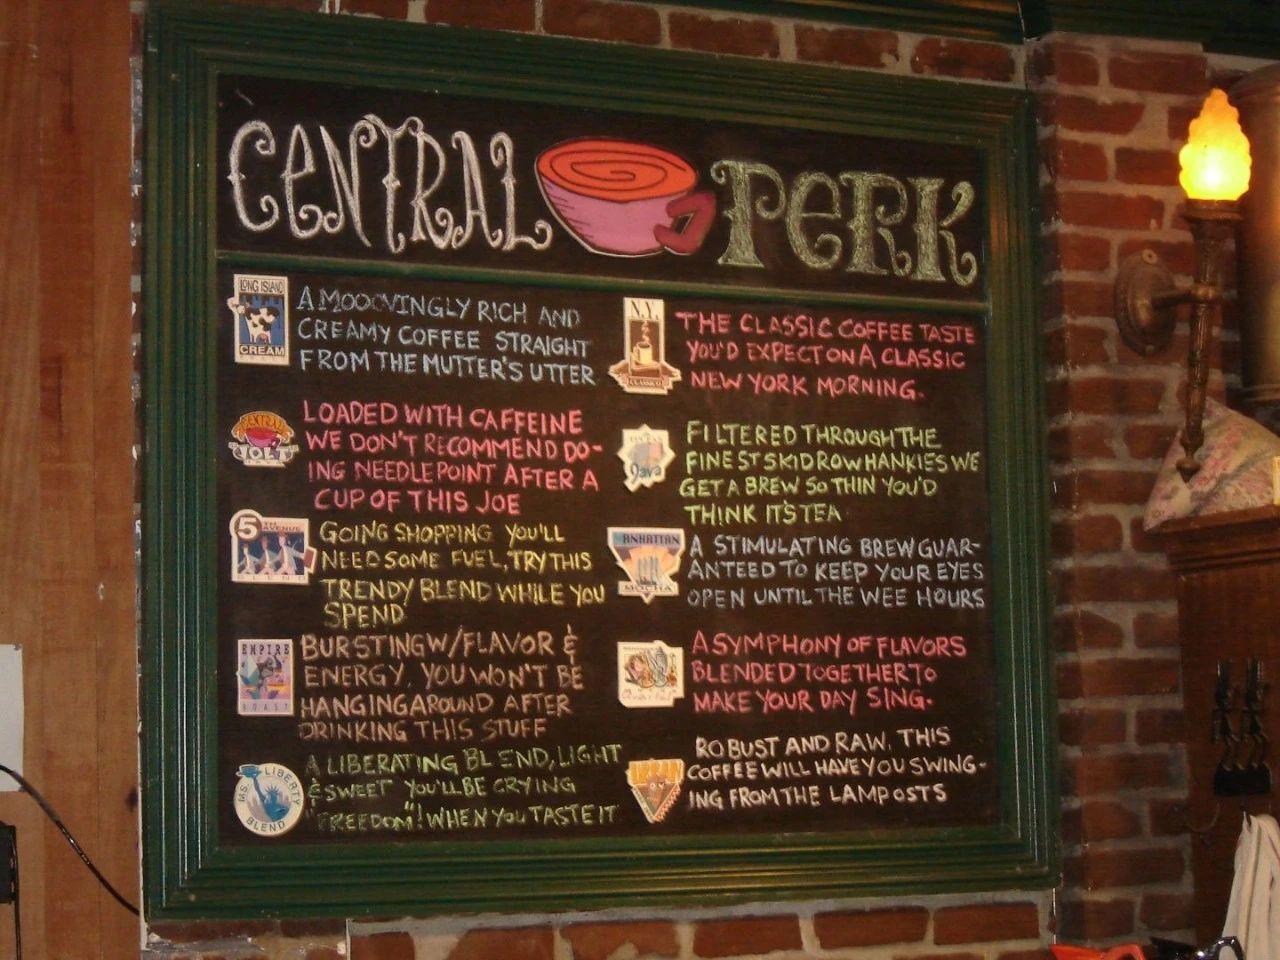 CENTRAL PERK
LONG ISLAND
CREAM
A MOOOVINGLY RICH AND
CREAMY COFFEE STRAIGHT
FROM THE MUTTER'S UTTER
CENTRAL
JOLT
JAVA
LOADED WITH CAFFEINE
WE DON'T RECOMMEND DO-
ING NEEDLEPOINT AFTER A
CUP OF THIS JOE
5TH AVENUE
BLEND
GOING SHOPPING YOU'LL
NEED SOME FUEL, TRY THIS
TRENDY BLEND WHILE YOU
SPEND
EMPIRE
ROAST
BURSTING W/FLAVOR &
ENERGY, YOU WON'T BE
HANGING AROUND AFTER
DRINKING THIS STUFF
MS. LIBERTY
BLEND
A LIBERATING BLEND, LIGHT
& SWEET YOU'LL BE CRYING
"FREEDOM"! WHEN YOU TASTE IT
N.Y.
CLASSICO
THE CLASSIC COFFEE TASTE
YOU'D EXPECT ON A CLASSIC
NEW YORK MORNING.
Java
FILTERED THROUGH THE
FINEST SKIDROW HANKIES WE
GET A BREW SO THIN YOU'D
THINK IT'S TEA
MANHATTAN
MOCHA
A STIMULATING BREW GUAR-
ANTEED TO KEEP YOUR EYES
OPEN UNTIL THE WEE HOURS
A SYMPHONY OF FLAVORS
BLENDED TOGETHER TO
MAKE YOUR DAY SING.
ROBUST AND RAW, THIS
COFFEE WILL HAVE YOU SWING-
ING FROM THE LAMPOSTS